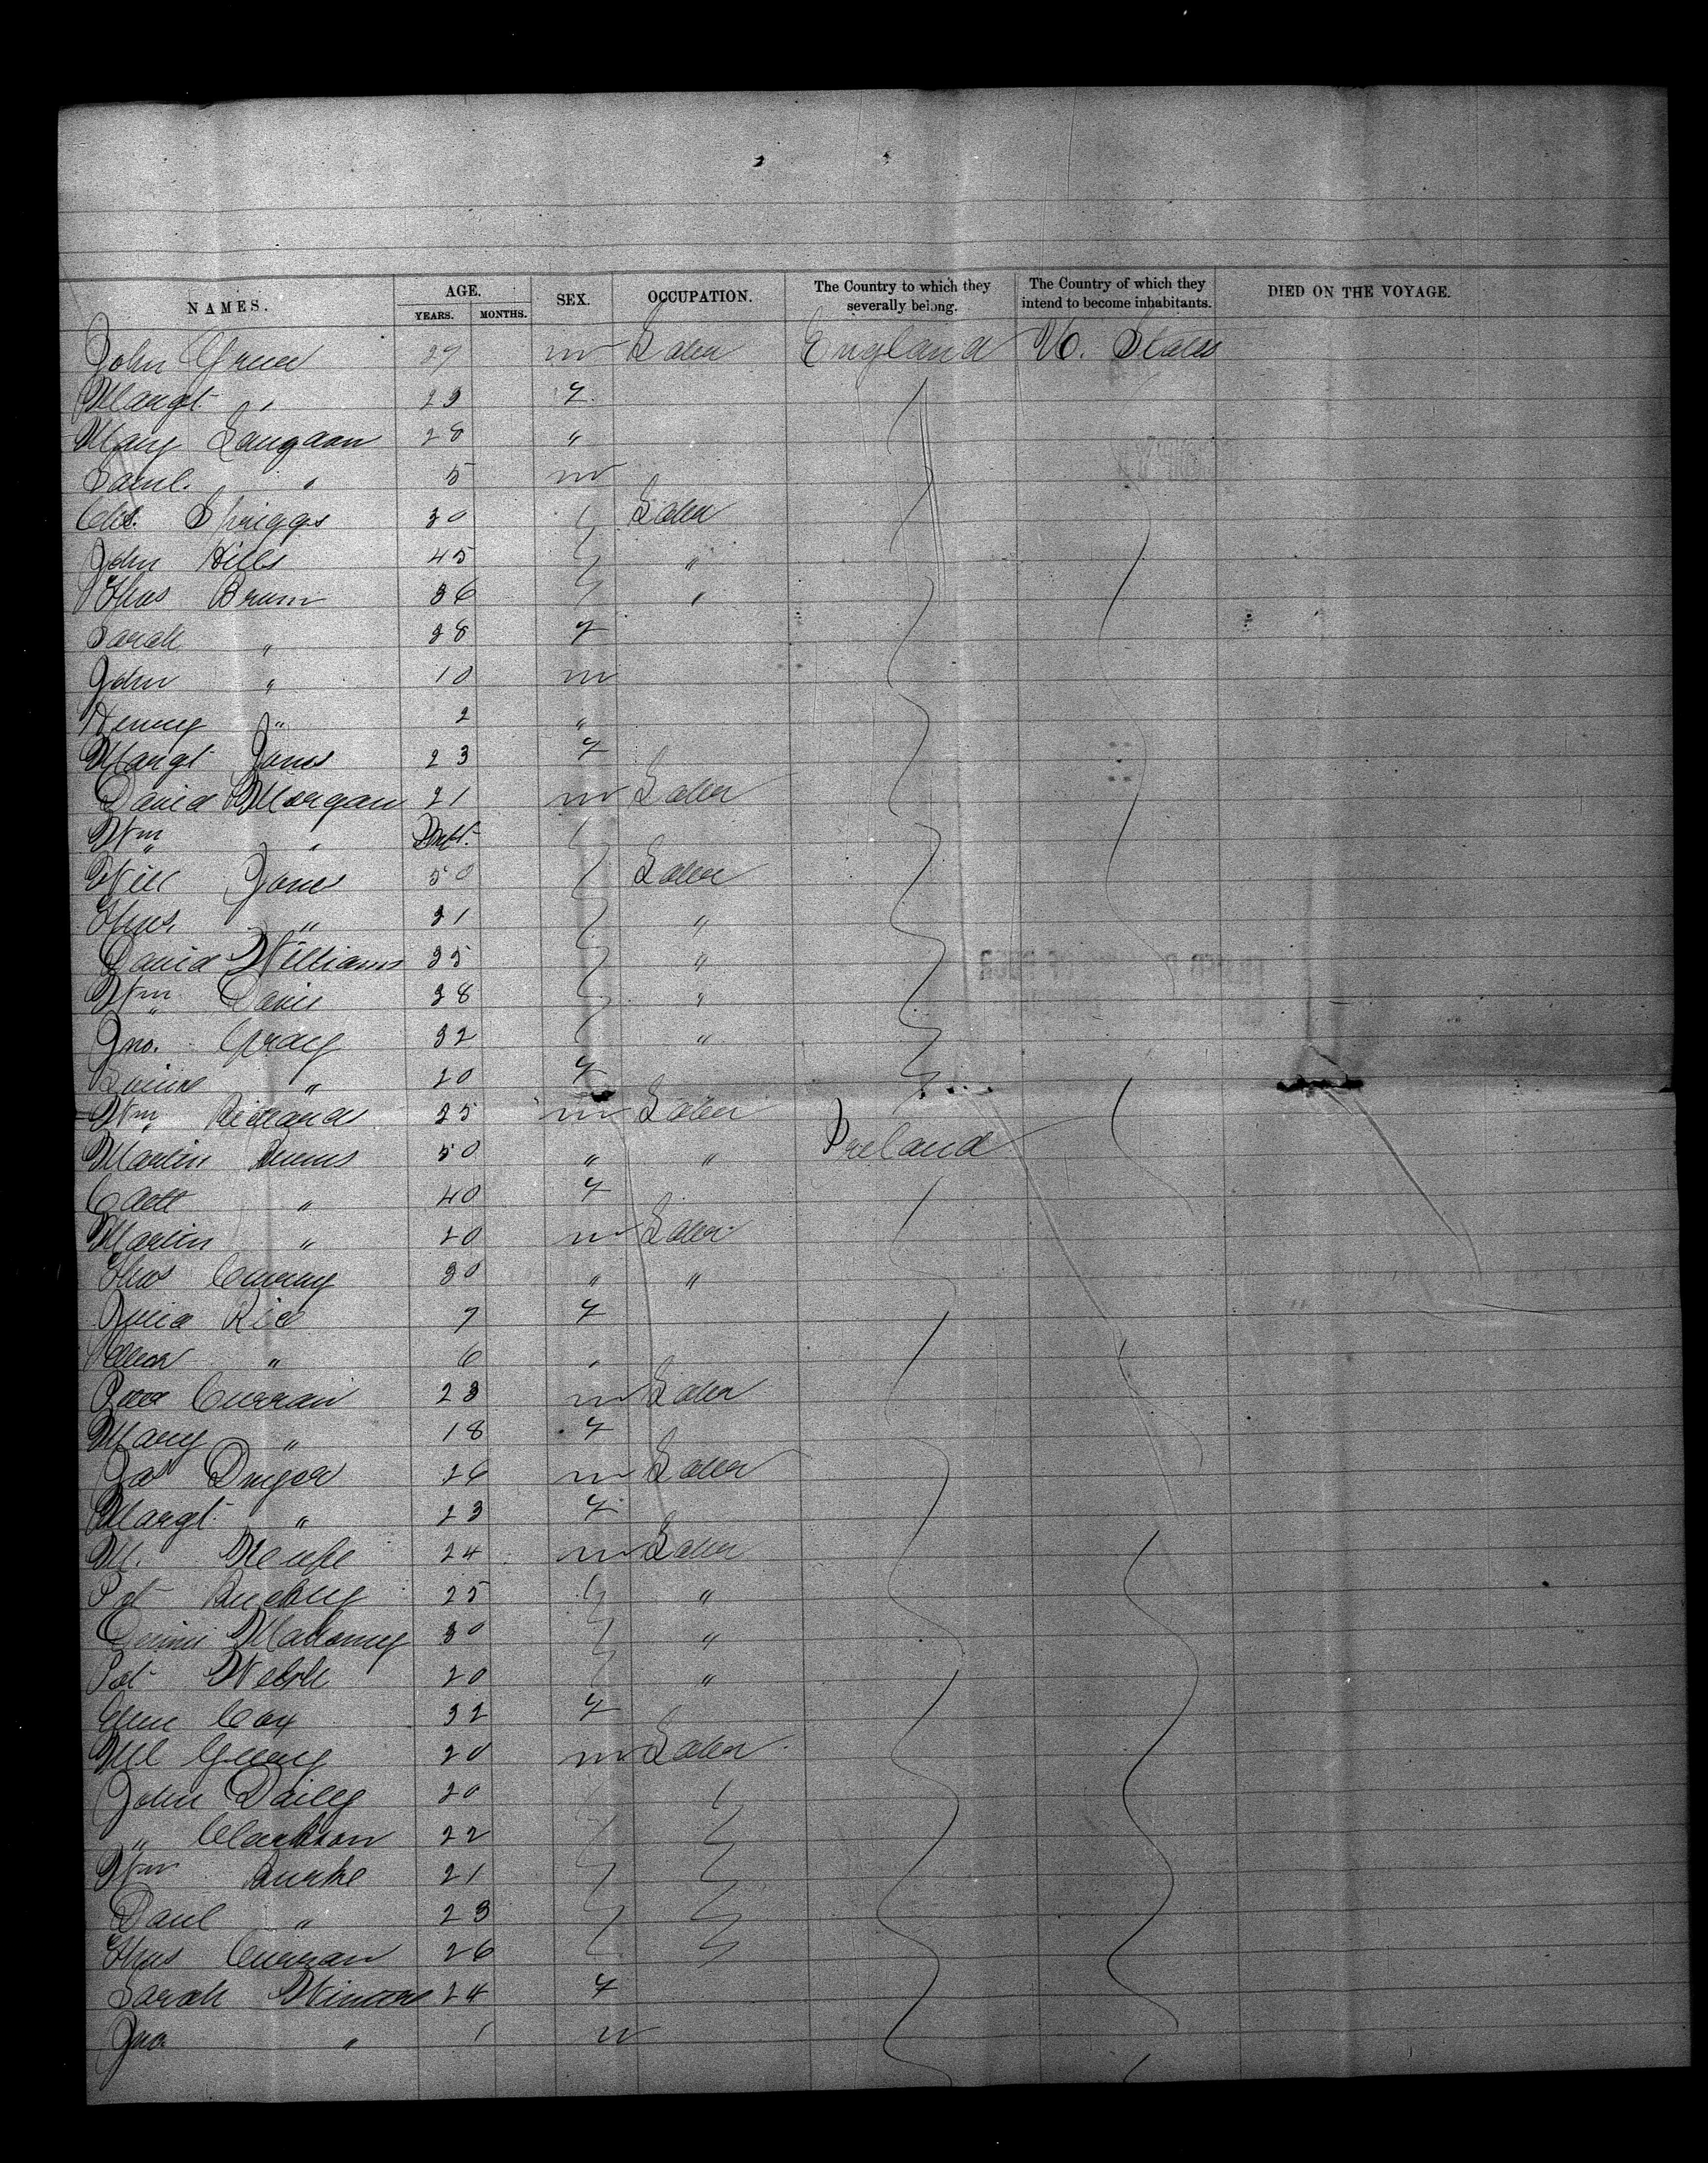 NAMES. AGE. SEX. OCCUPATION. The Country to which they severally belong. The Country of which they intend to become inhabitants. DIED ON THE VOYAGE.
YEARS. MONTHS.
John Green 29 m Labr England U. States
Margt " 23 f
Mary 28 "
Saml. " 5 m
Chs. Spriggs 30 Labr
John Hills 45 "
Thos Brum 36 "
Sarah " 38 f
John " 10 m
Henry " 2 "
Margt Jones 23 f
David Morgan 21 m Labr
Wm " Inft.
Will Jones 50 Labr
Thos. " 31 "
David Williams 35 "
Wm Davis 38 "
Jno. Gray 32 "
Louise " 20 f
Wm Richards 25 m Labr
Martin Burns 50 " " Ireland
Cath " 40 f
Martin " 20 m Labr
Thos 30 " "
Julia Rice 7 f
Ellen " 6 "
Curran 23 m Labr
Mary " 18 f
Jas Dwyer 26 m Labr
Margt. " 23 f
M. Keefe 24 m Labr
Pat Buckley 25 "
Dennis Mahoney 30 "
Pat Welsh 20 "
Ellen Cox 32 f
Ml 20 m Labr
John Dailey 20
" Clarkson 22
Wm Burke 21
Danl " 23
Thos Curran 26
Sarah 24 f
Jno. " 1 m